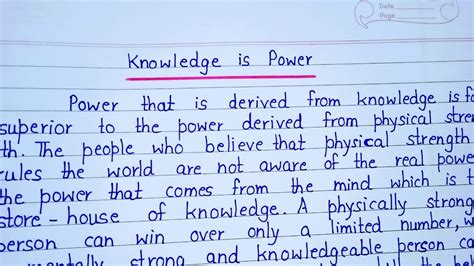 Date
Page
Knowledge is Power
Power that is derived from knowledge is fa
superior to the power derived from physical stren
th. The people who believe that physical strength
rules the world are not aware of the real powe
the power that comes from the mind which is t
store-house of knowledge. A physically strong
person can win over only a limited number, w
mentally strong and knowledgeable person ca
the